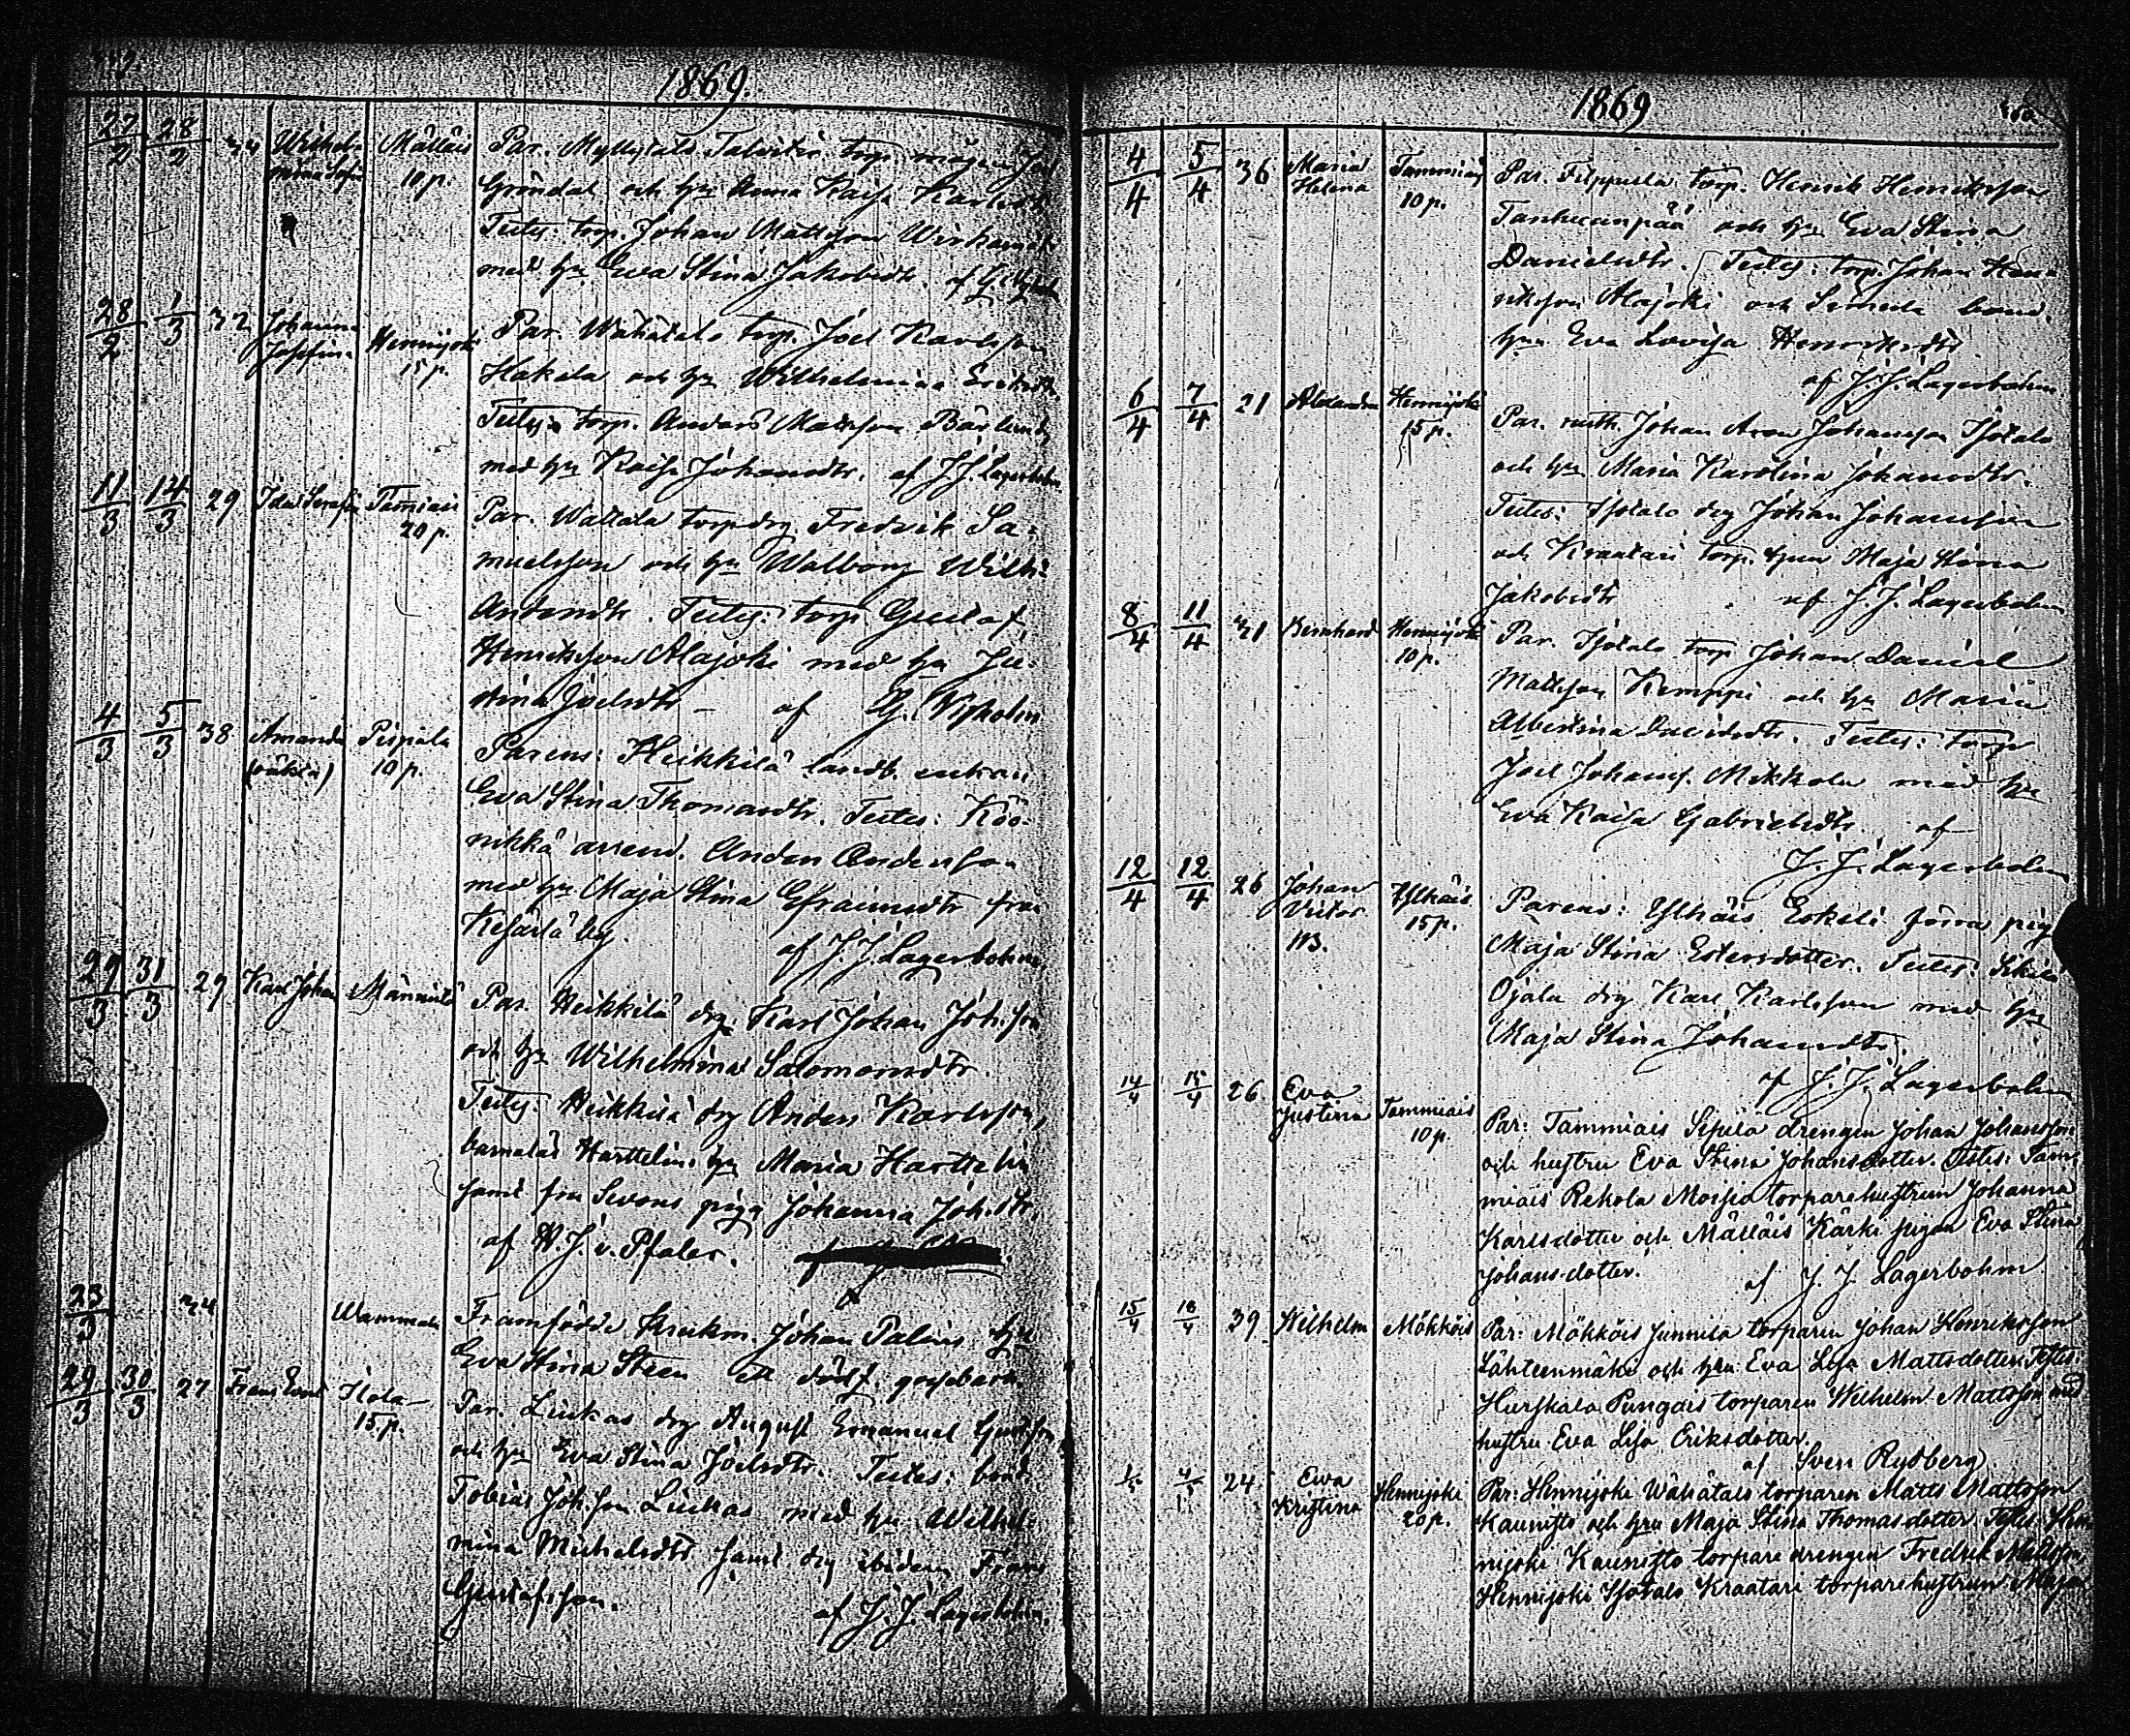 1869.
27/2 28/2 34 Wilhel- Mälläis Par. Myllytalo torp.
mina Sofia 10 p. Gröndal och hu Anna Kaisa Karlsdtr
Testes: torp. Johan Mattsson
med hu Eva Stina Jakobsdtr. af
28/2 1/3 32 Johanna Hennijoki Par. Wähätalo torp. Joel Karlsson
Josefina 15 p. Hakala och hu Wilhelmina Eriksdtr.
Testes torp. Anders Mattsson Bärlund
med hu Kaisa Johansdtr. af J. J. Lagerbohm
11/3 14/3 29 Ida Serafia Tamiais Par. Wattala torp drg Fredrik Sa-
20 p. muelsson och hu Walborg Wilh:
Andersdtr. Testes: torp Gustaf
Henriksson Alajoki med hu Ju-
stina Joelsdtr – af
4/3 5/3 38 Amanda Pispala Parens: Heikkilä landb. enkan
(oäkta) 10 p. Eva Stina Thomasdtr. Testes: Köö-
nikkä arrend. Anders Andersson
med hu Maja Stina Efraimsdtr från
Kesärlä by. af J. J. Lagerbohm
29/3 31/3 29 Karl Johan Männistö Par. Heikkilä drg. Karl Johan Joh.son
och hu Wilhelmina Salomonsdtr.
Testes: Heikkilä drg Anders Karlsson,
Harttelins hu Maria Harttelin
samt fru Sevons piga Johanna Joh.dtr.
af W. J. v. Pfaler.
23/3 34 Wammala Framfödde Johan Palins hu
Eva Stina Steen ett dödf. gossebarn
29/3 30/3 27 Frans Ilola Par. Liukas drg August Emanuel
15 p. och hu Eva Stina Joelsdtr. Testes: bond.
Tobias Joh.son Liukas med hu Wilhel-
mina Michelsdtr samt drg ibidem Frans
Gustafsson. af J. J. Lagerbohm.
1869
4/4 5/4 36 Maria Tammiais Par. Filppula torp. Henrik Henriksson
Helena 10 p. Tanhuanpää och hu Eva Stina
Danielsdtr. Testes: torp. Johan Hen-
riksson Alajoki och bond.
hu Eva Lovisa Henriksdtr
af J. J. Lagerbohm
6/4 7/4 21 Alexandra Hennijoki Par. Johan Aron Johansson Isotalo
15 p. och hu Maria Karolina Johansdtr.
Testes: Isotalo drg Johan Johansson
och Kraatari torp. hun Maja Stina
Jakobsdtr af J. J. Lagerbohm
8/4 11/4 31 Bernhard Hennijoki Par. Isotalo torp Johan Daniel
10 p. Mattsson Kemppi och hu Maria
Albertina Davidsdtr. Testes: torp
Joel Johans. Mikkola med hu
Eva Kaisa Gabrielsdtr. af
J. J. Lagerbohm
12/4 12/4 26 Johan Ylhäis Parens: Ylhäis Eskeli förra pig
Victor 15 p. Maja Stina Estersdotter. Testes:
Ojala drg Karl Karlsson med hu
Maja Stina Johansdtr.
af J. J. Lagerbohm
14/4 15/4 26 Eva Tammiais Par: Tammiais Sipilä drengen Johan Johansson
Justina 10 p. och hustru Eva Stina Johansdotter. Testes: Tam-
miais Rekola Moisio torparehustrun Johanna
Karlsdotter och Mälläis Kärki pigan Eva Stina
Johansdotter. af J. J. Lagerbohm
15/4 18/4 39 Wilhelm Mökköis Par: Mökköis Junnila torparen Johan Henriksson
Lähteenmäki och hru Eva Lisa Mattsdotter. Testes:
Hurskala Pungais torparen Wilhelm Mattsson med
hustru Eva Lisa Eriksdotter.
af Sven Rydberg.
24 Ewa Hennijoki Par: Hennijoki Wähätalo torparen Matts Mattsson
Kristina 20 p. Kaunisto och hru Maja Stina Thomasdotter. Testes: Hen-
nijoki Kaunisto torpare drengen Fredrik Mattsson,
Hennijoki Isotalo Kraatari torparehustrun Maja